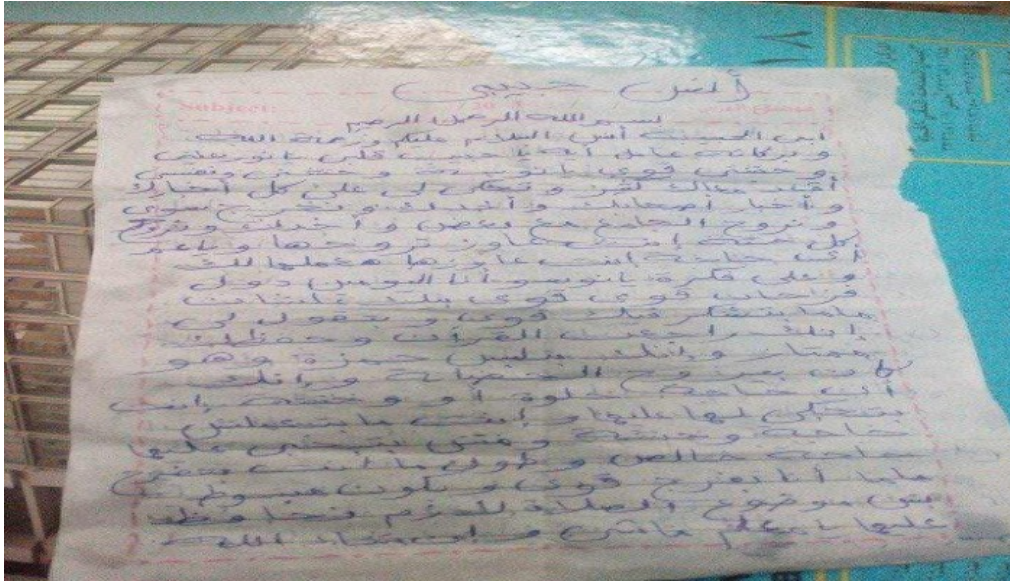 أنس حبيبي
بسم الله الرحمن الرحيم
ابني الحبيب أنس السلام عليكم ورحمة الله
وبركاته عامل إيه يا حبيب قلبي يا نور عيني
وحشتني قوي يا نوسة و ونفسي
أقعد معاك وتحكي لي على كل أخبارك
وأخبار أصحابك وآخدك ونخرج سوى
ونروح الجامع مع بعض وآخدك ونروح
كل حتة إنت عاوز تروحها و
أي حاجة إنت عاوزها هعملها لك
وعلى فكرة يا نوسو أنا اليومين دول
فرحان قوي قوي بك علشان
ماما بتشكر فيك قوي وبتقول لي
إنك راجعت القرآن وحفظك
ممتاز وإنك بتلبس حمزة وهو
الحضانة وإنك
أي حاجة حلوة أو وحشة إنت
بتحكي لها عليها وإنت ما بتعملش
حاجة وحشة ومش بتخبي عليها
حاجة خالص وطول ما إنت بتفرح
ماما أنا بفرح قوي وبكون مبسوط
بس موضوع الصلاة لازم نحافظ
عليها يا بطل ماشي إن شاء الله